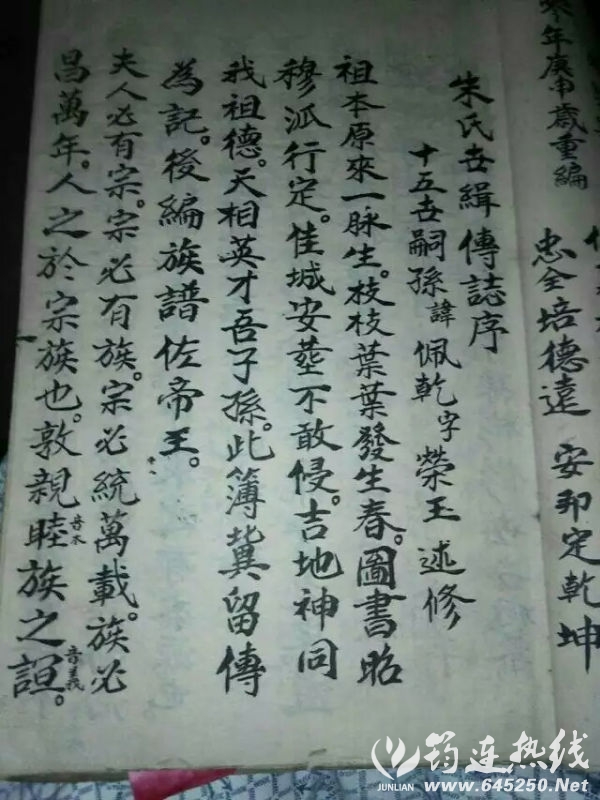 年庚申歲重編
忠全培德遠 安邦定乾坤
朱氏世緝傳誌序
十五世嗣孫諱佩乾字榮玉述修
祖本原來一脉生。枝枝葉葉發生春。圖書昭
穆派行定。佳城安塟不敢侵。吉地神同
我祖德。天相英才吾子孫。此簿冀留傳
為記。後編族譜佐帝王。
夫人必有宗。宗必有族。宗必統萬載。族必
昌萬年。人之於宗族也。敦親睦音木族之誼音義。
筠连热线
JUNLIAN www.645250.Net